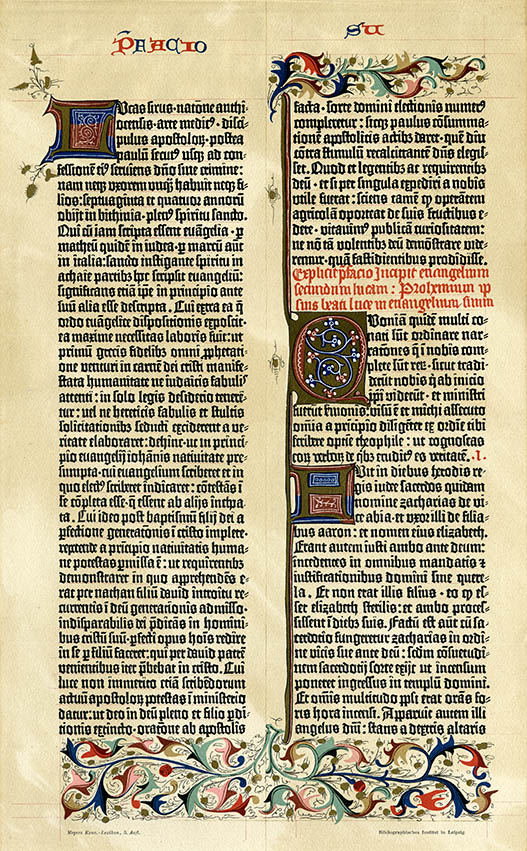 Prefacio
Lucas sirus · natiõe anthi⸗
ocensis · arte medic⁹ · disci⸗
pulus apostoloꝝ · postea
paulũ secut⁹ usqꝫ ad con⸗
fessionẽ ei⁹ serviens dño sine crimine:
nam neqꝫ uxorem unꝗ habuit neqꝫ fi⸗
lios: septuaginta et quatuor annorũ
obijt in bithinia · plen⁹ spiritu sancto ·
Qui cũ iam scripta essent evãgelia · ꝑ
matheũ quidẽ in iudea · ꝑ marcũ aũt
in italia: sancto instigante spiritu in
achaie partibꝫ hoc scripsit evangeliũ:
significans eciã ip̃e in principio ante
suũ alia esse descripta . Cui extra ea q̃
ordo evãgelice dispositionis exposcit:
ea maxime necessitas laboris fuit: ut
primũ grecis fidelibꝫ omni ꝓphetati⸗
one venturi in carnẽ dei cristi manife⸗
stata humanitate ne iudaicis fabulis
attenti: in solo legis desiderio teneren⸗
tur: vel ne hereticis fabulis et stultis
solicitationibꝫ seducti exciderent a ve⸗
ritate elaboraret: dehinc · ut in princi⸗
pio evangelij iohãnis nativitate pre⸗
sumpta · cui evangelium scriberet et in
quo elect⁹ scriberet indicaret: cõtestãs ĩ
se cõpleta esse · q̃ essent ab alijs incepta .
Cui ideo post baptismũ filij dei a
ꝑfectione generatõnis ĩ cristo implete ·
repetende a principio nativitatis huma⸗
ne potestas ꝑmissa ẽ: ut requirentibꝫ
demonstraret in quo apprehendẽs e⸗
rat per nathan filiũ david introitu re⸗
currentis ĩ deũ generationis admisso ·
indisparabilis dei p̃dicãs in homini⸗
bus cristũ suũ · ꝑfecti opus hoĩs redire
in se ꝑ filiũ faceret: qui per david patrẽ
venientibus iter p̃bebat in cristo . Cui
luce non immerito eciã scribẽdorum
actuũ apostoloꝝ potestas ĩ ministerio
datur: ut deo in deũ pleno et filio ꝓdi⸗
tionis extincto · oratiõne ab apostolis
su
facta · sorte domini electionis numer⁹
compleretur: sicqꝫ paulus cõsumma⸗
tionẽ apostolicis actibꝫ daret · quẽ diu
cõtra stimulũ recalcitrantẽ dñs elegis⸗
set . Quod et legentibꝫ ac requirentibꝫ
deũ · et si per singula expediri a nobis
utile fuerat: sciens tamẽ ꝙ operãtem
agricolã oporteat de suis fructibus e⸗
dere · vitavim⁹ publicã curiositatem:
ne nõ tã volentibꝫ deũ demõstrare vide⸗
remur · quã fastidientibus prodidisse .
Explicit p̃facio Incipit euangelium
secundum lucam: Prohemium ip⸗
sius beati luce in euangelium suum
Quoniã quidẽ multi co⸗
nati sũt ordinare nar⸗
rationes q̃ ĩ nobis com⸗
plete sũt reꝝ · sicut tradi⸗
derũt nobis q̃ ab inicio
ip̃i viderũt · et ministri
fuerũt sermonis: visũ ẽ et michi assecuto
omnia a prĩcipio diligẽter ex ordĩe tibi
scribere optĩe theophile: ut cognoscas
eoꝝ verboꝝ de q̃bꝫ erudit⁹ es veritatẽ . I .
Fuit in diebus herodis re⸗
gis iudee sacerdos quidam
nomine zacharias de vi⸗
ce abia · et uxor illi de filia⸗
bus aaron: et nomen eius elizabeth .
Erant autem iusti ambo ante deum:
incedentes in omnibus mandatis et
iustificationibus domini sine quere⸗
la . Et non erat illis filius · eo ꝙ es⸗
set elizabeth sterilis: et ambo proces⸗
sissent ĩ diebꝫ suis . Factũ est aũt cũ sa⸗
cerdotio fungeretur zacharias in ordi⸗
ne vicis sue ante deũ: scd̃m cõsuetudi⸗
nem sacerdotij sorte exijt ut incensum
poneret ingressus in templũ domini .
Et om̃is multitudo pp̃li erat orãs fo⸗
ris hora incensi . Apparuit autem illi
angelus dñi: stans a dextris altaris
Meyers Konv.-Lexikon, 5. Aufl.
Bibliographisches Institut in Leipzig.